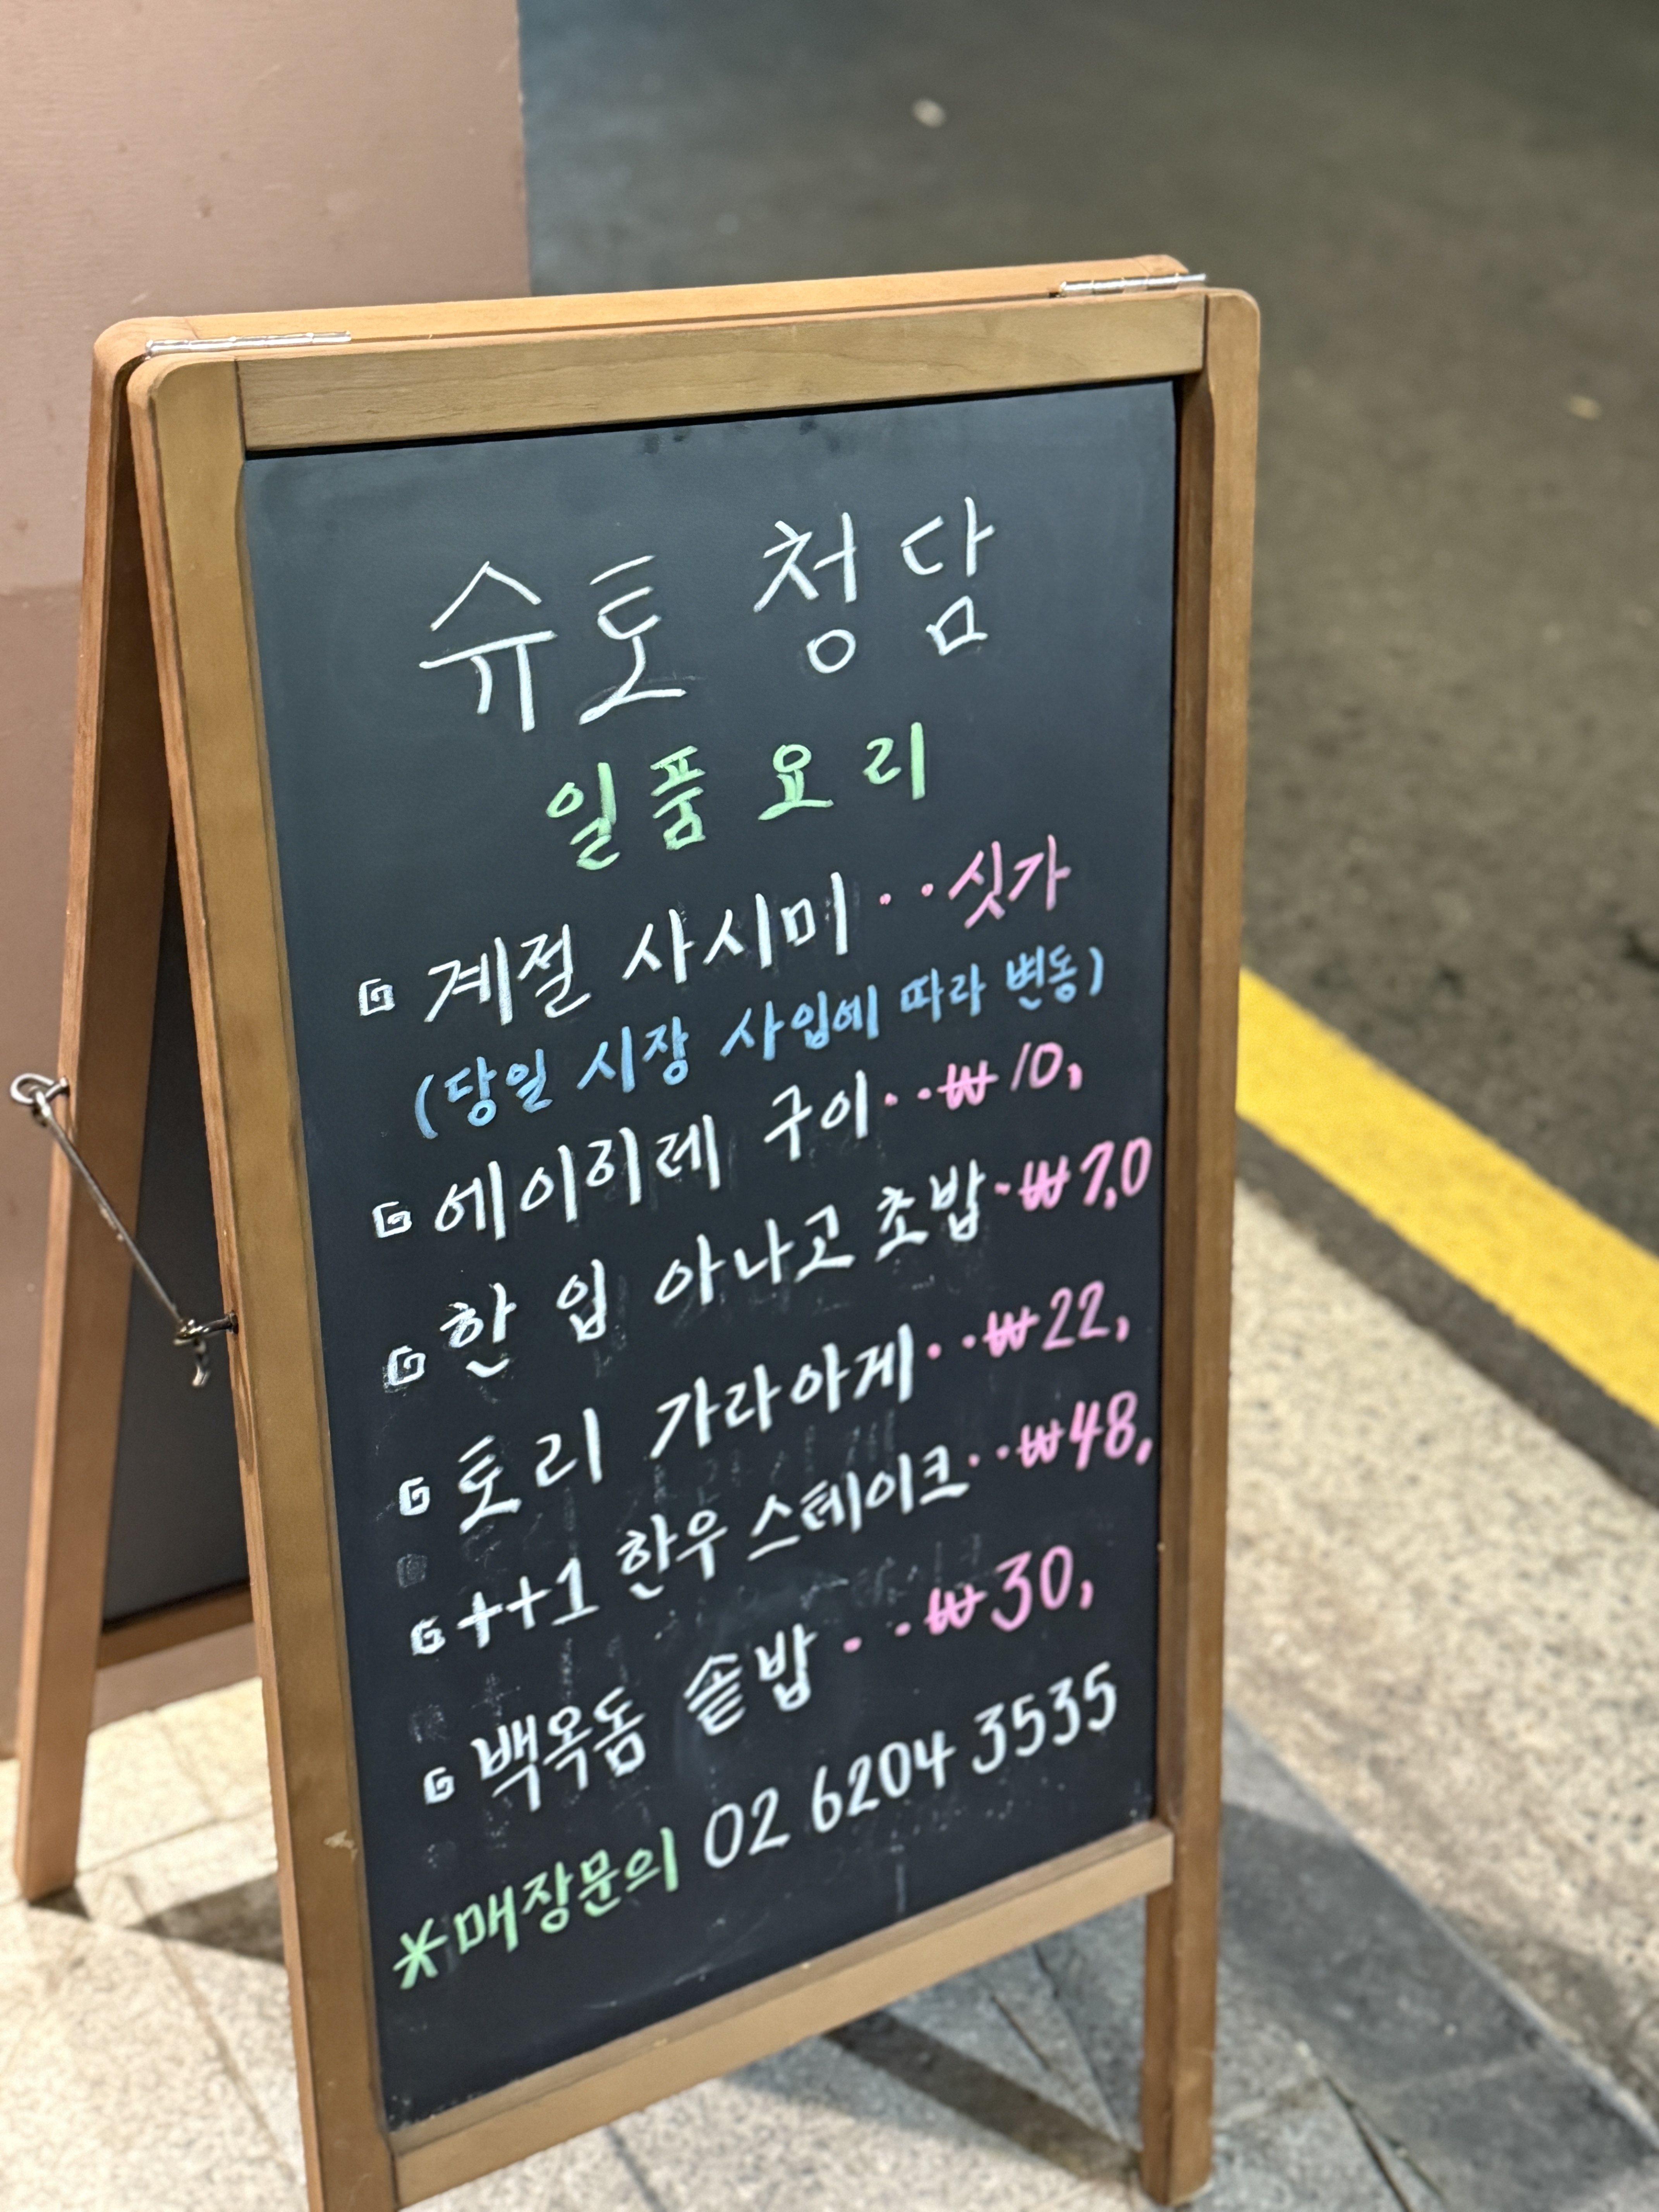 슈토 청담
일품 요리
계절 사시미 ‥싯가
(당일 시장 사입에 따라 변동)
에이히레 구이‥₩10,
한 입 아나고 초밥·₩7,0
토리 가라아게‥₩22,
++1 한우 스테이크‥₩48,
백옥돔 솥밥‥₩30,
*매장문의 02 6204 3535